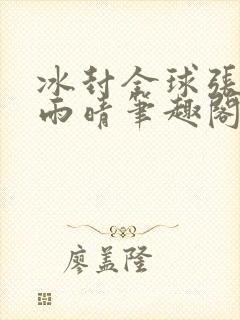 冰封全球張
雨晴筆趣閣
廖盖隆